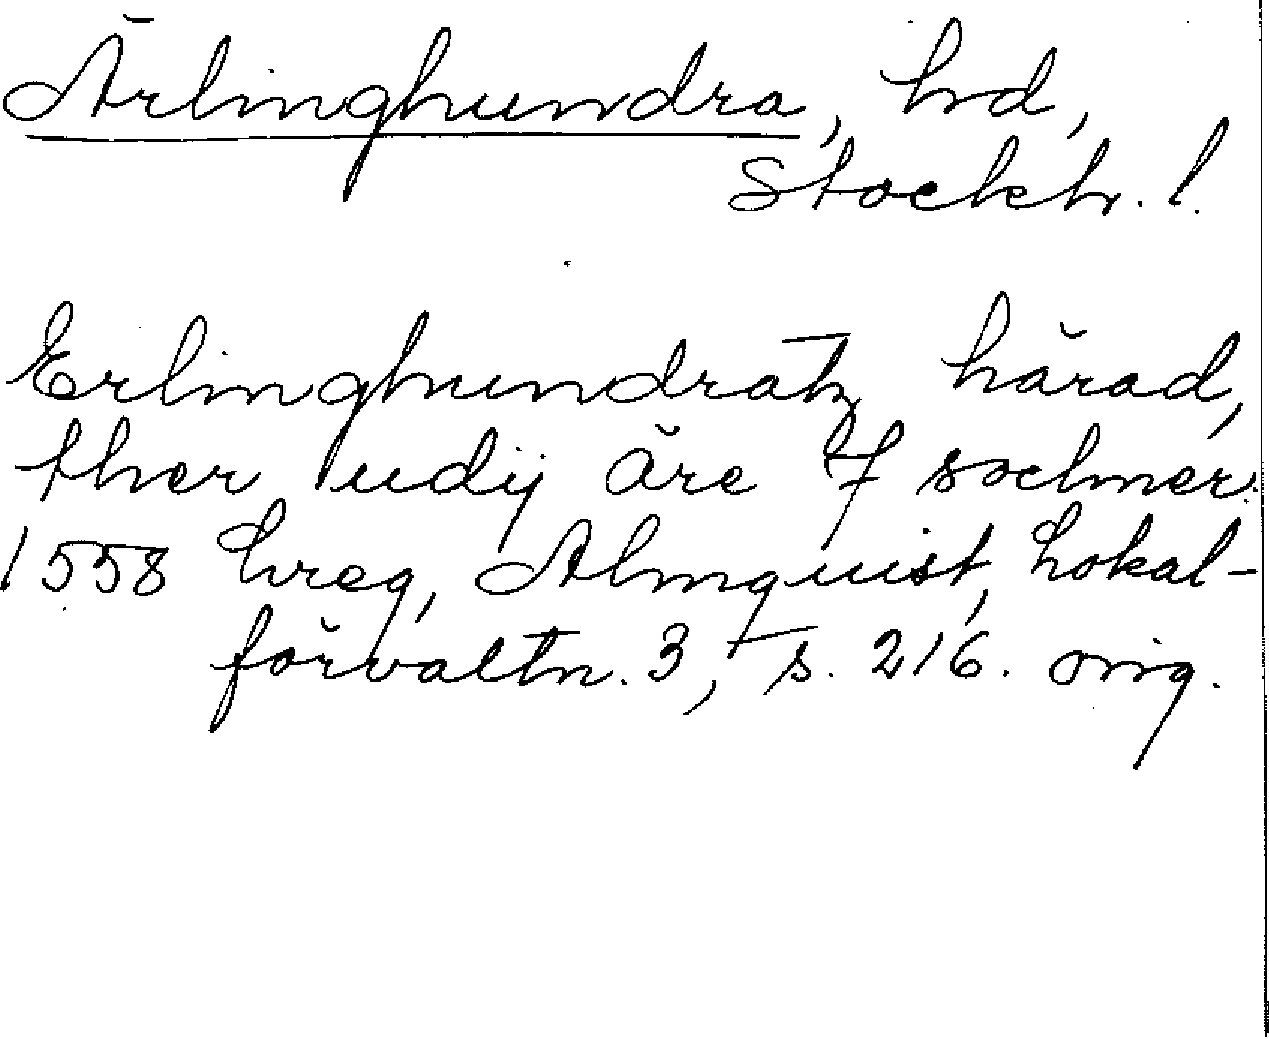 Ärlinghundra, hd,
Stockh. l.
Erlinghundratz härad,
ther udij äre 7 sochner.
1558 hreg, Almquist, Lokal-
förvaltn. 3, s. 216. orig.